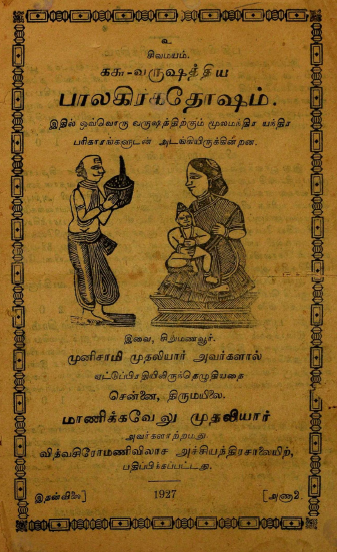 உ
சிவமயம்.
ககூ-வருஷத்திய
பாலகிரகதோஷம்.
இதில் ஒவ்வொரு வருஷத்திற்கும் மூலமந்திர யந்திர
பரிகாரங்களுடன் அடங்கியிருக்கின்றன.
இவை, சிறுமணவூர்.
முனிசாமி முதலியார் அவர்களால்
ஏட்டுப்பிரதியிலிருந்தெழுதியதை
சென்னை, திருமயிலை.
மாணிக்கவேலு முதலியார்
அவர்களாற்றமது
வித்வசிரோமணிவிலாச அச்சியந்திரசாலையிற்,
பதிப்பிக்கப்பட்டது.
இதன்விலை] 1927 [அணா2.